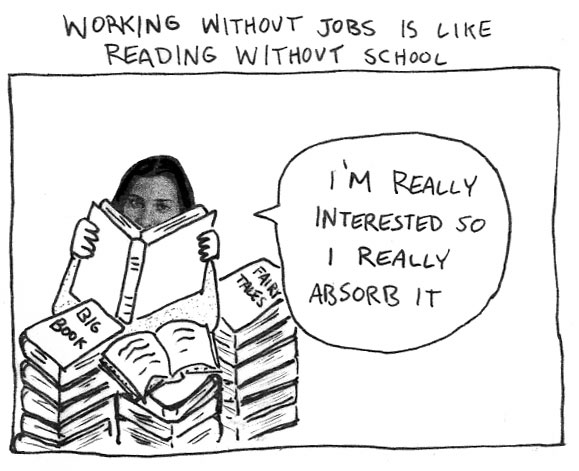 WORKING WITHOUT JOBS IS LIKE
READING WITHOUT SCHOOL
I'M REALLY
INTERESTED SO
I REALLY
ABSORB IT
FAIRY
TALES
BIG
BOOK